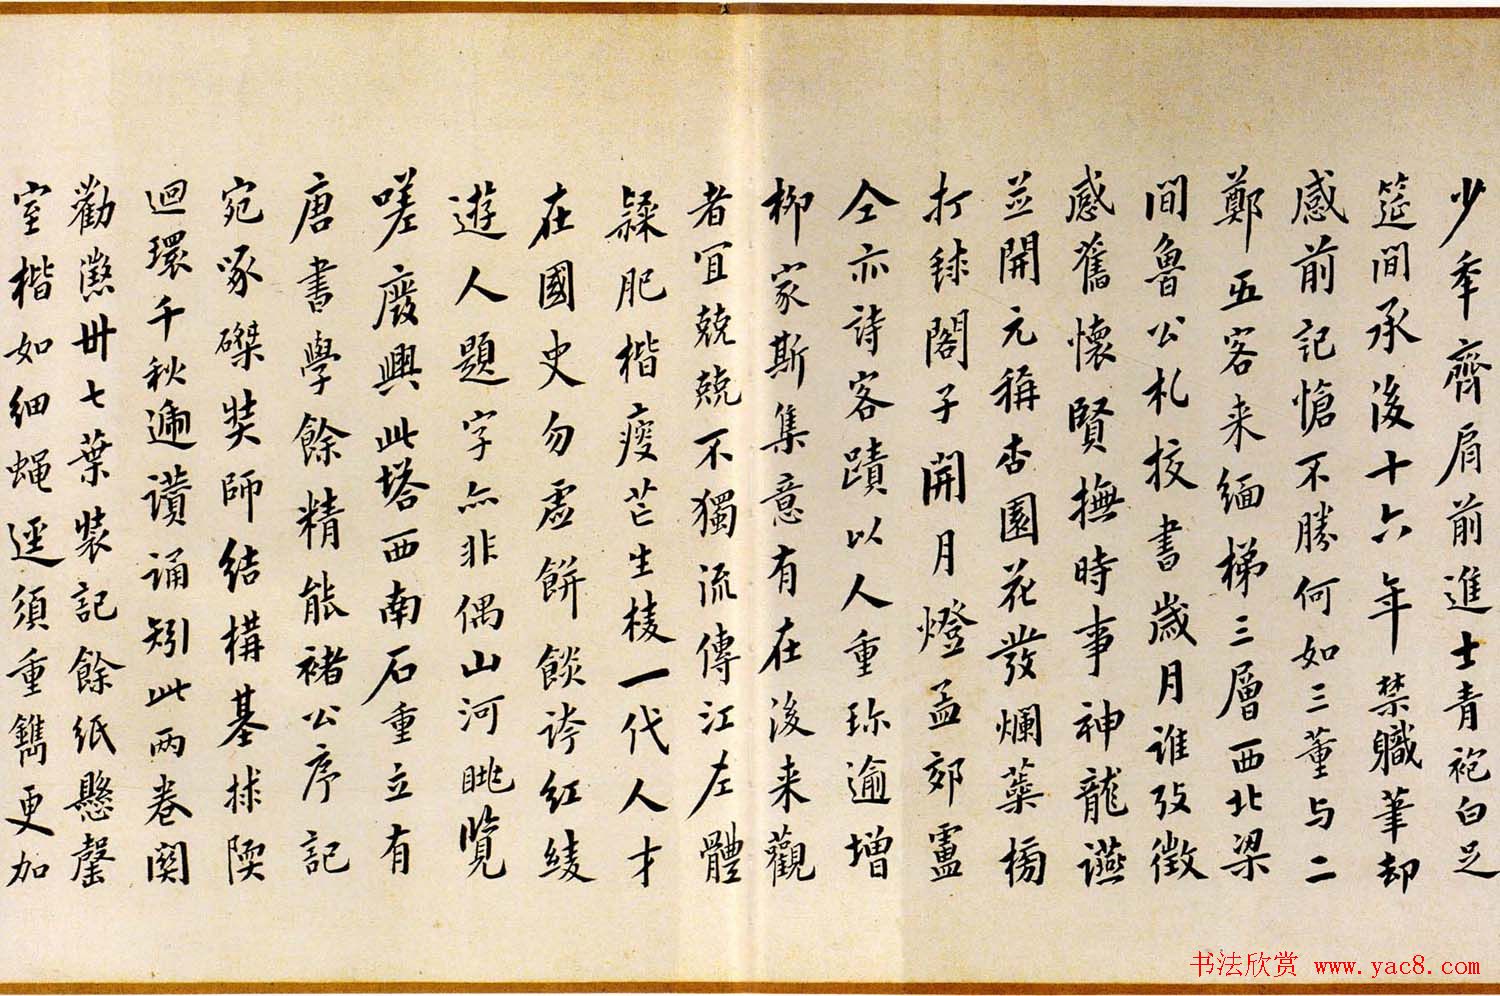 少年齊肩前進士青袍白足
筵間承後十六年禁職筆却
感前記愴不勝何如三董与二
鄭五客来緬梯三層西北梁
間魯公札挍書歲月誰攷徵
感舊懷賢撫時事神龍讌
並開元稱杏園花發爛蘂榜
打毬閣子開月燈孟郊盧
仝亦詩客蹟以人重珎逾增
柳家斯集意有在後来觀
者冝兢兢不獨流傳江左體
肥楷瘦芒生棱一代人才
在國史勿虛餅餤誇紅綾
遊人題字亦非偶山河眺覽
嗟廢興此塔西南石重立有
唐書學餘精能褚公序記
宛啄磔奘師結構基捄陾
迴環千秋遍讚誦矧此兩卷関
勸懲卅七葉裝記餘紙懸罄
室楷如細蠅逕須重鐫更加
书法欣赏 www.yac8.com